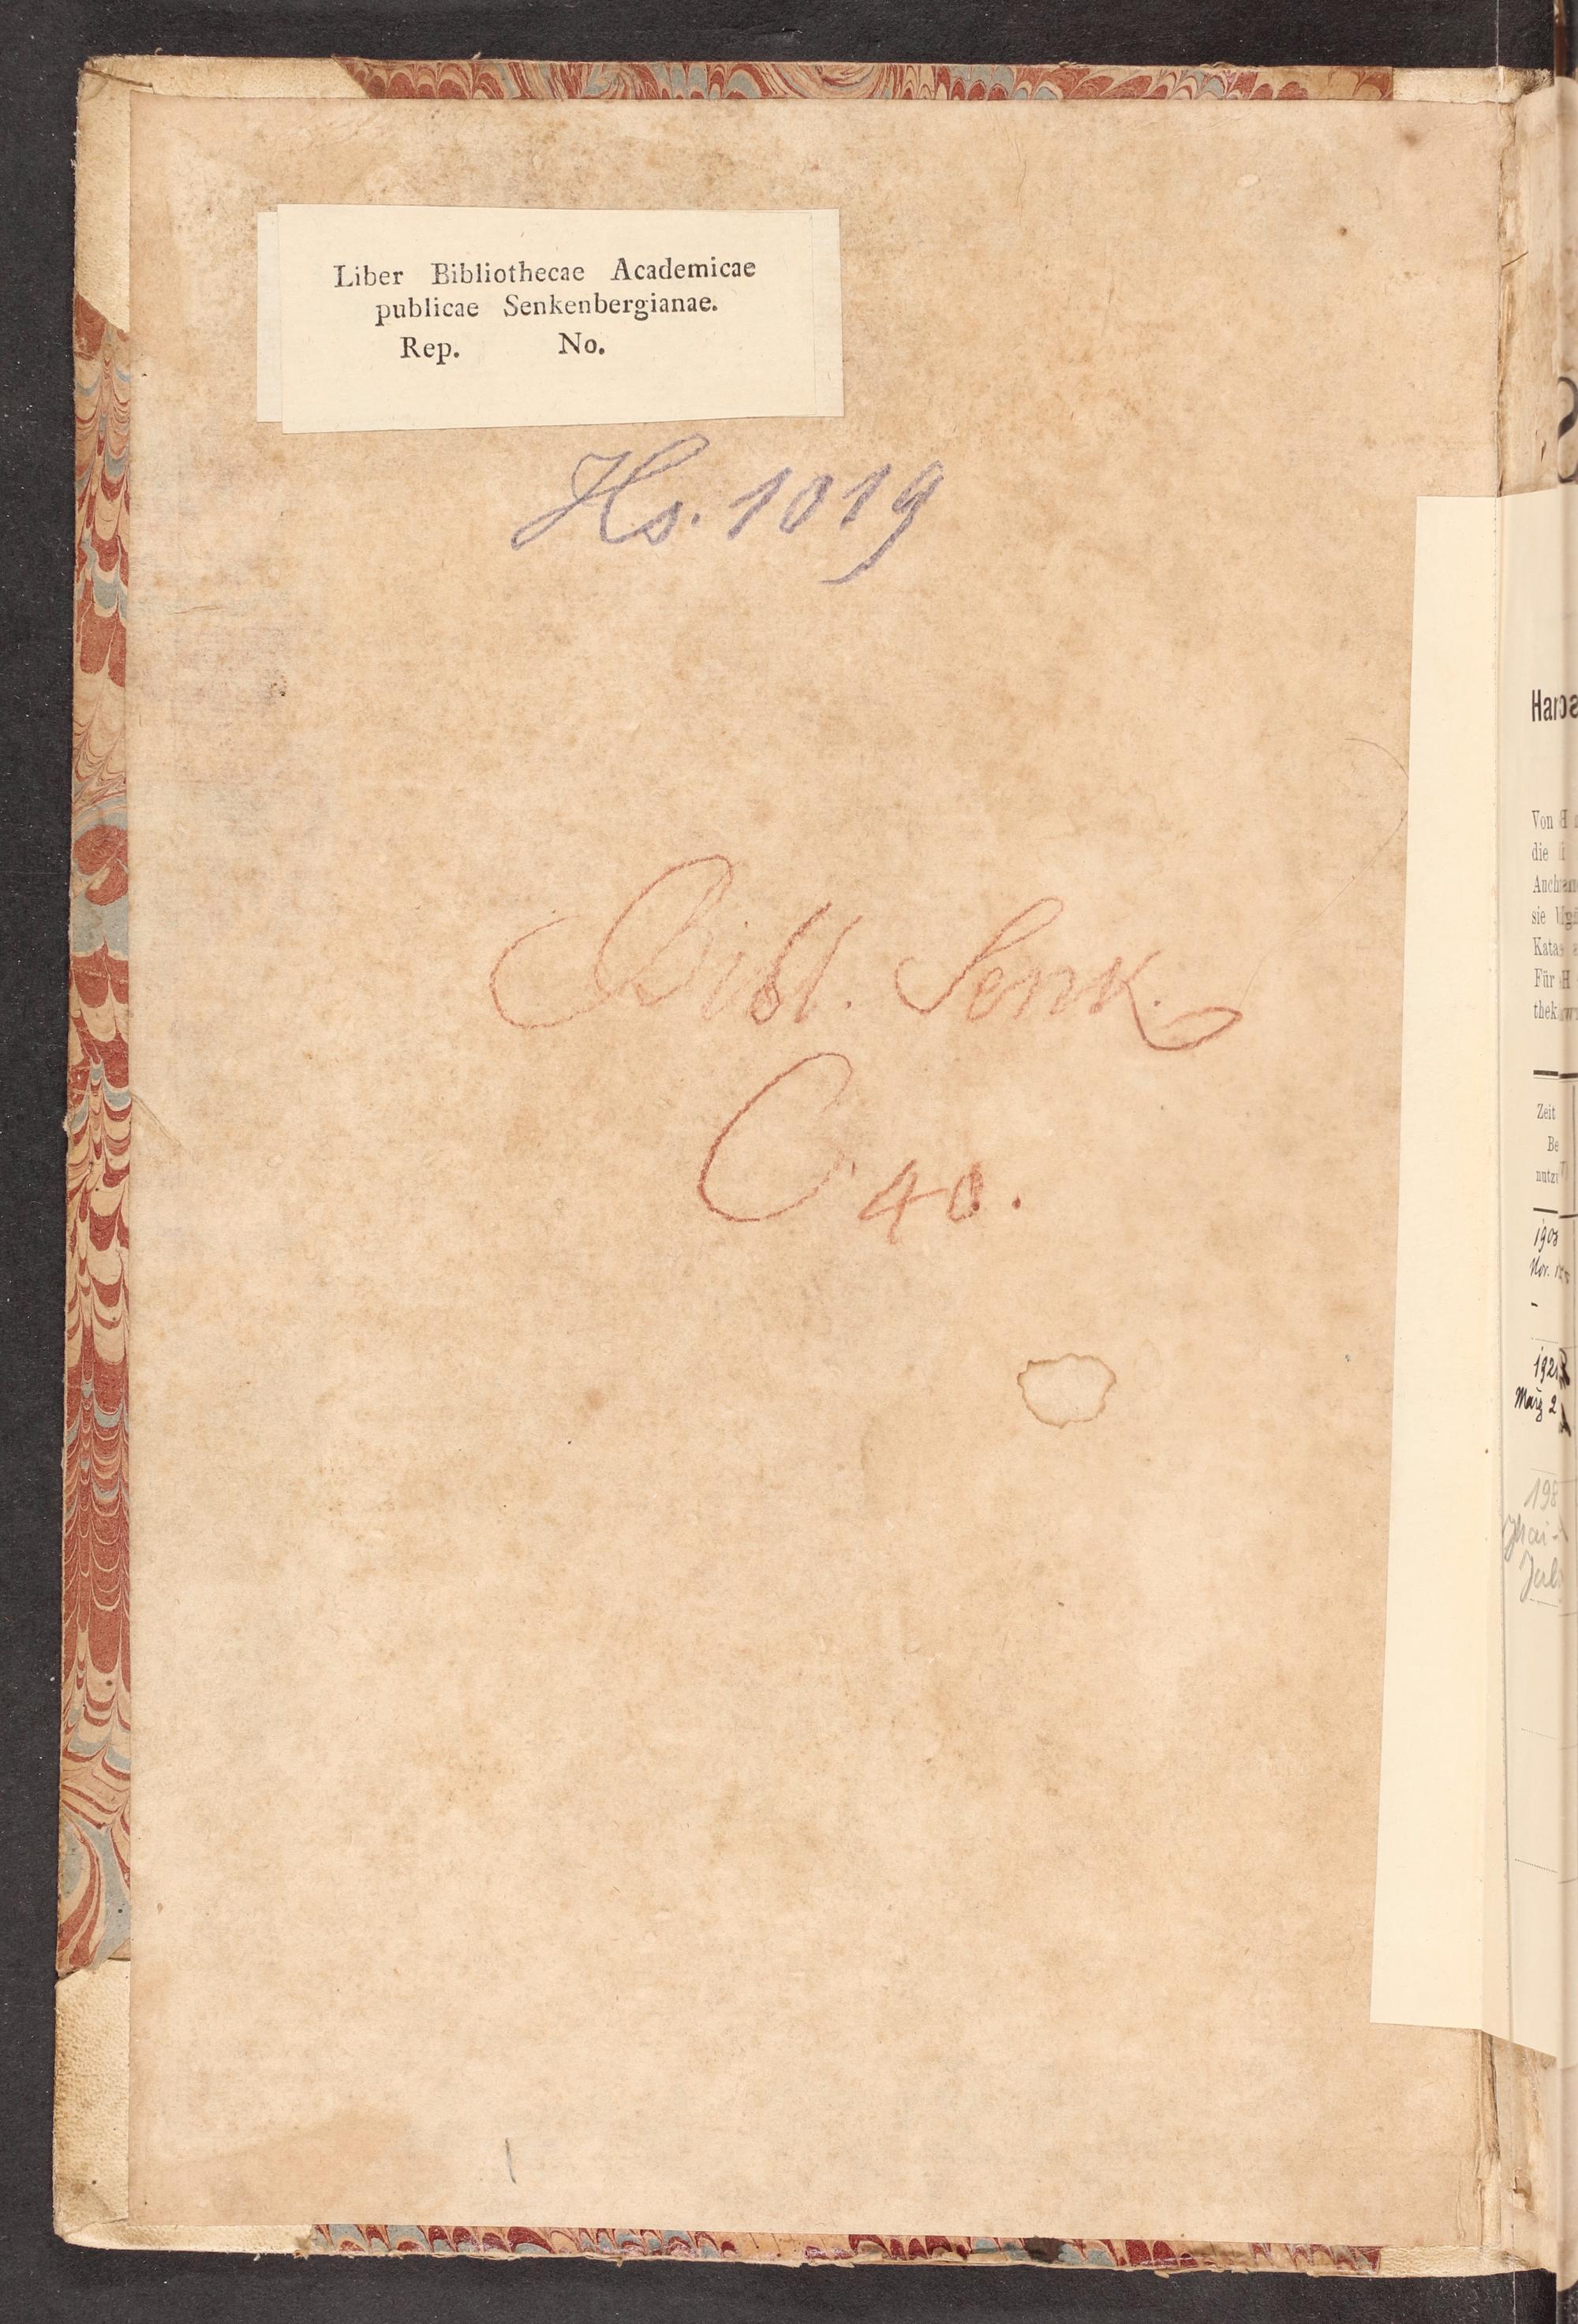 Liber Bibliothecae Academicae
publicae Senkenbergianae.
Rep. No.
Hs. 1019
Bibl. Senk.
C 40.
Von
die
Auch
sie
Kata
Für
thek
Zeit
Be
nutz
Nov.
März 2
198
Mai -